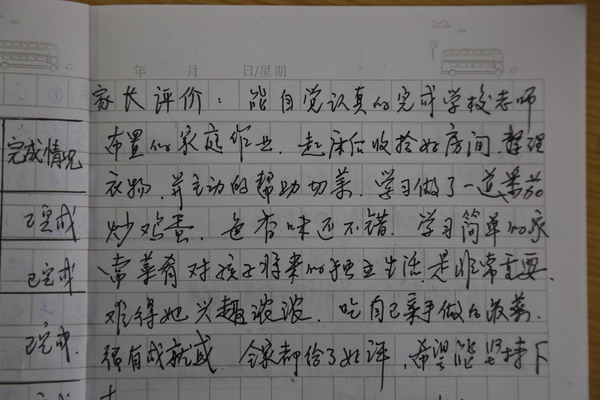 年 月 日/星期
家长评价：能自觉认真的完成学校老师
布置的家庭作业，起床后收拾好房间，整理
衣物，并主动的帮助切菜，学习做了一道番茄
炒鸡蛋，色香味还不错，学习简单的家
常菜肴对孩子将来的独立生活，是非常重要，
难得她兴趣浓浓，吃自己亲手做的饭菜，
很有成就感，全家都给了好评，希望能坚持下
完成情况
已完成
已完成
已完成